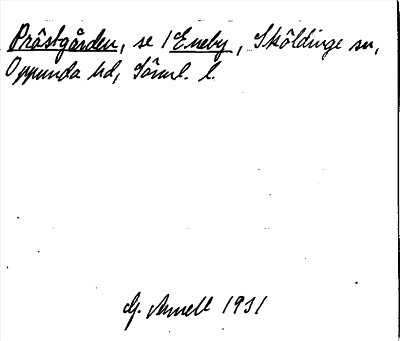 Prästgården, se 1 Eneby, Sköldinge sn,
Oppunda hd, Sörml. l.
G. Annell 1931